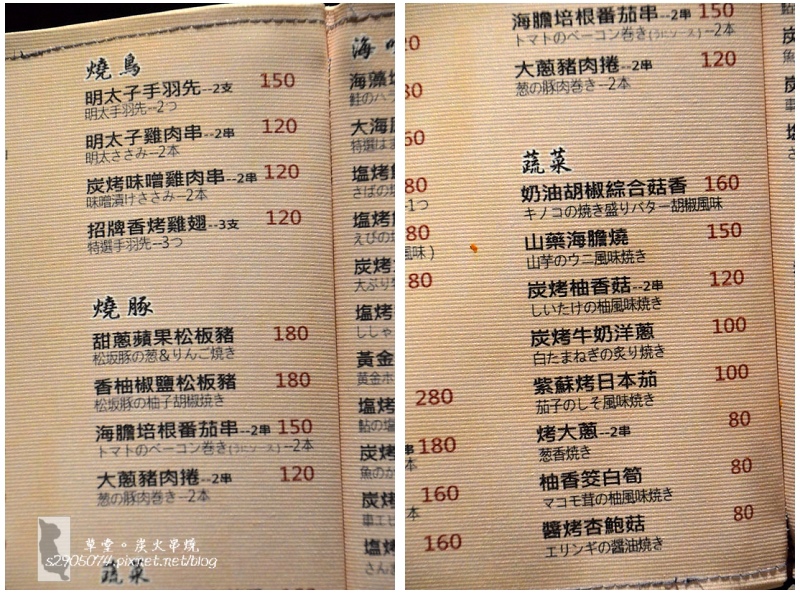 燒鳥
明太子手羽先--2支 150
明太手羽先--2つ
明太子雞肉串--2串 120
明太ささみ--2本
炭烤味噌雞肉串--2串 120
味噌漬けささみ--2本
招牌香烤雞翅--3支 120
特選手羽先--3つ
燒豚
甜蔥蘋果松板豬 180
松坂豚の葱&りんご焼き
香柚椒鹽松板豬 180
松坂豚の柚子胡椒焼き
海膽培根番茄串--2串 150
トマトのベーコン巻き(うにソース)--2本
大蔥豬肉捲--2串 120
葱の豚肉巻き--2本
蔬菜
海
海藻
鮭のハラ
大海
特選は
塩烤
さばの塩
塩烤
えびの
炭烤
大ぶり
塩烤
ししゃ
黃金
黄金ホ
塩烤
鮎の塩
炭烤
魚のか
炭烤
車エビ
塩烤
さん
草堂。炭火串燒
s2905074.pixnet.net/blog
海膽培根番茄串--2串 150
トマトのベーコン巻き(うにソース)--2本
大蔥豬肉捲--2串 120
葱の豚肉巻き--2本
蔬菜
奶油胡椒綜合菇香 160
キノコの焼き盛りバター胡椒風味
山藥海膽燒 150
山芋のウニ風味焼き
炭烤柚香菇--2串 120
しいたけの柚風味焼き
炭烤牛奶洋蔥 100
白たまねぎの炙り焼き
紫蘇烤日本茄 100
茄子のしそ風味焼き
烤大蔥--2串 80
葱香焼き
柚香筊白筍 80
マコモ茸の柚風味焼き
醬烤杏鮑菇 80
エリンギの醤油焼き
20
80
60
80
--1つ
80
風味)
80
280
串 180
本
160
本
160